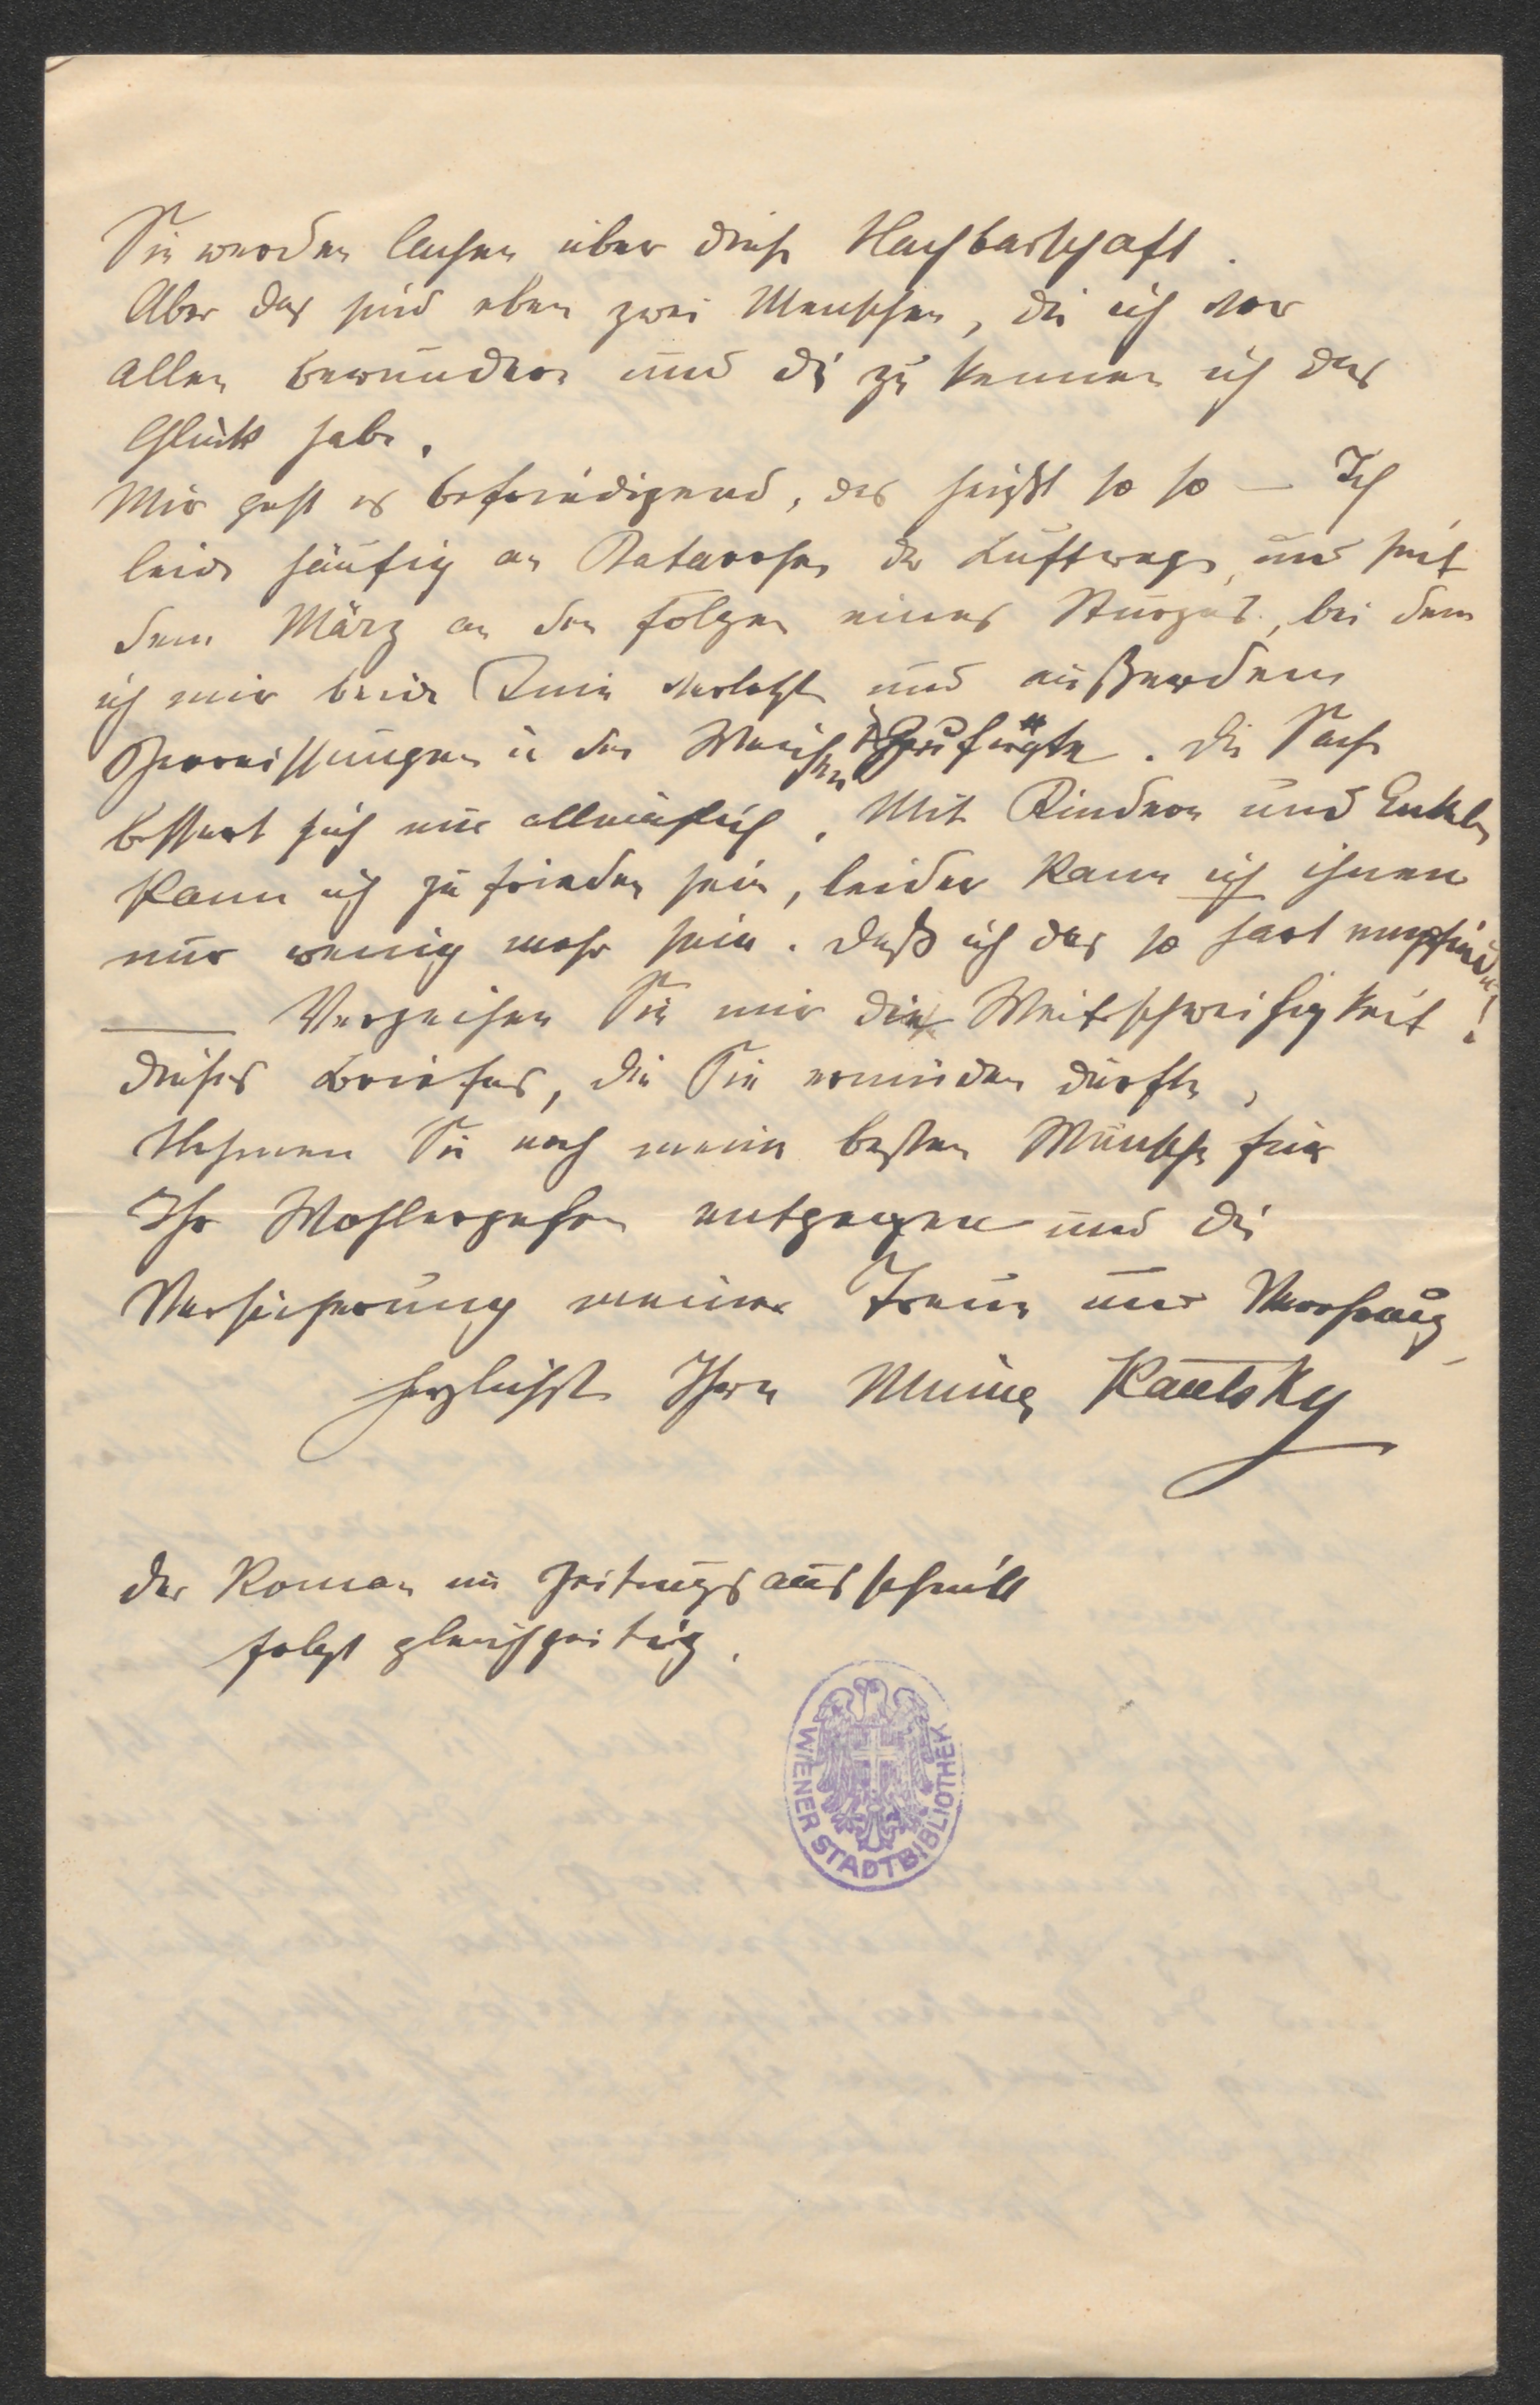 Sie werden lachen über diese Nachbarschaft.
Aber das sind eben zwei Menschen, die ich vor
allen bewundere und die zu kennen ich das
Glück habe.
Mir geht es befriedigend, das heißt so so — Ich
leide häufig an Katarrhen der Luftwege, und seit
dem März an den Folgen eines Sturzes, bei dem
ich mir beide Knie verletzte und außerdem
Zerreissungen in den Weichen zufügte. Die Sache
bessert sich nur allmählich. Mit Kindern und Enkeln
kann ich zufrieden sein, leider kann ich ihnen
nur wenig mehr sein. Daß ich das so hart empfinde!
— Verzeihen Sie mir die Weitschweifigkeit
dieses Briefes, die Sie ermüden dürfte,
Nehmen Sie noch meine besten Wünsche für
Ihr Wohlergehen entgegen und die
Versicherung meiner Treue und Verehrung
herzlichst Ihre Minna Kautsky
Der Roman im Zeitungsausschnitt
folgt gleichzeitig.
WIENER STADTBIBLIOTHEK